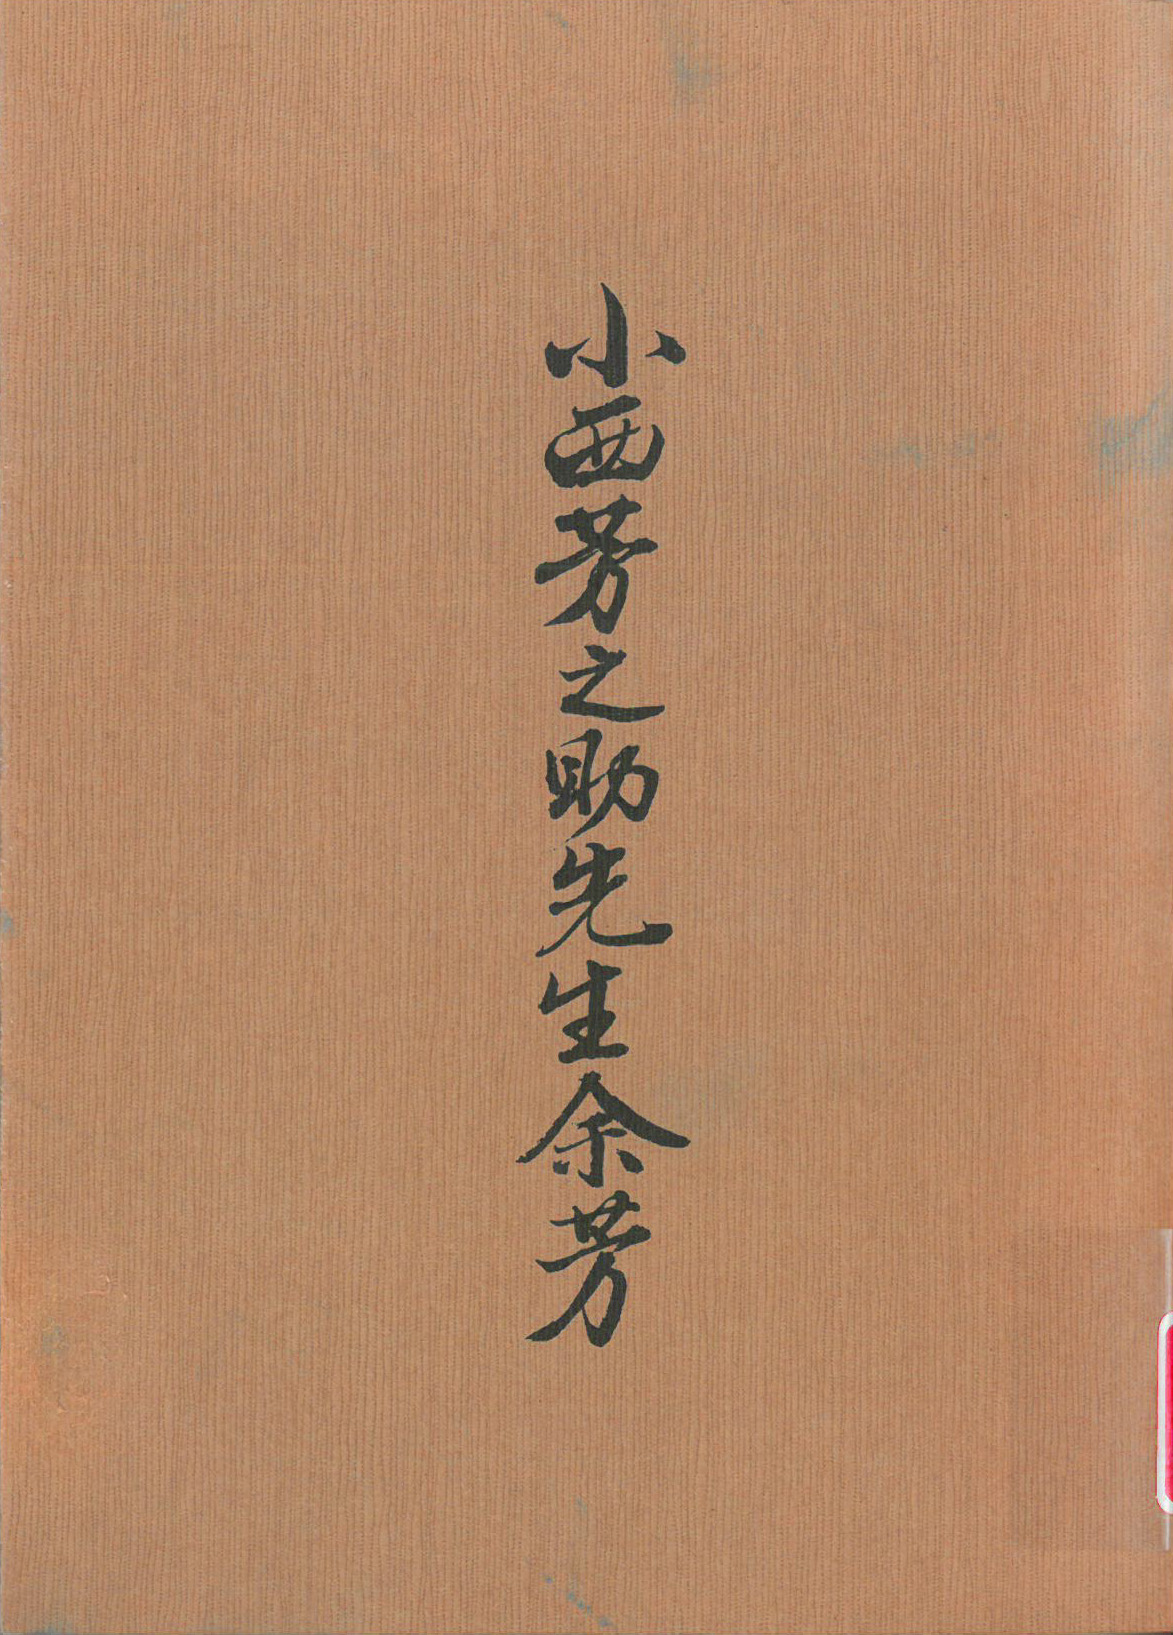 小西芳之助先生余芳